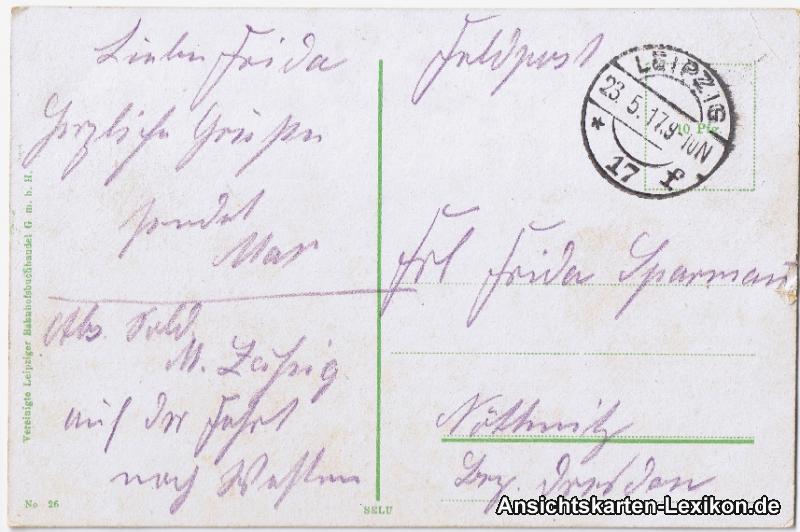 Liebe Frida
Herzliche Grüße
sendet
Max
Abs. Sold.
M.
auf der Fahrt
nach Westen
Vereinigte Leipziger Bahnhofsbuchhandel G. m. b. H.
No 26
SELU
Feldpost
LEIPZIG
23.5.17.9-10N
* 17 f
10 Pfg
Frl Frida Sparman
Nöthnitz
Bez. Dresden
Ansichtskarten-Lexikon.de